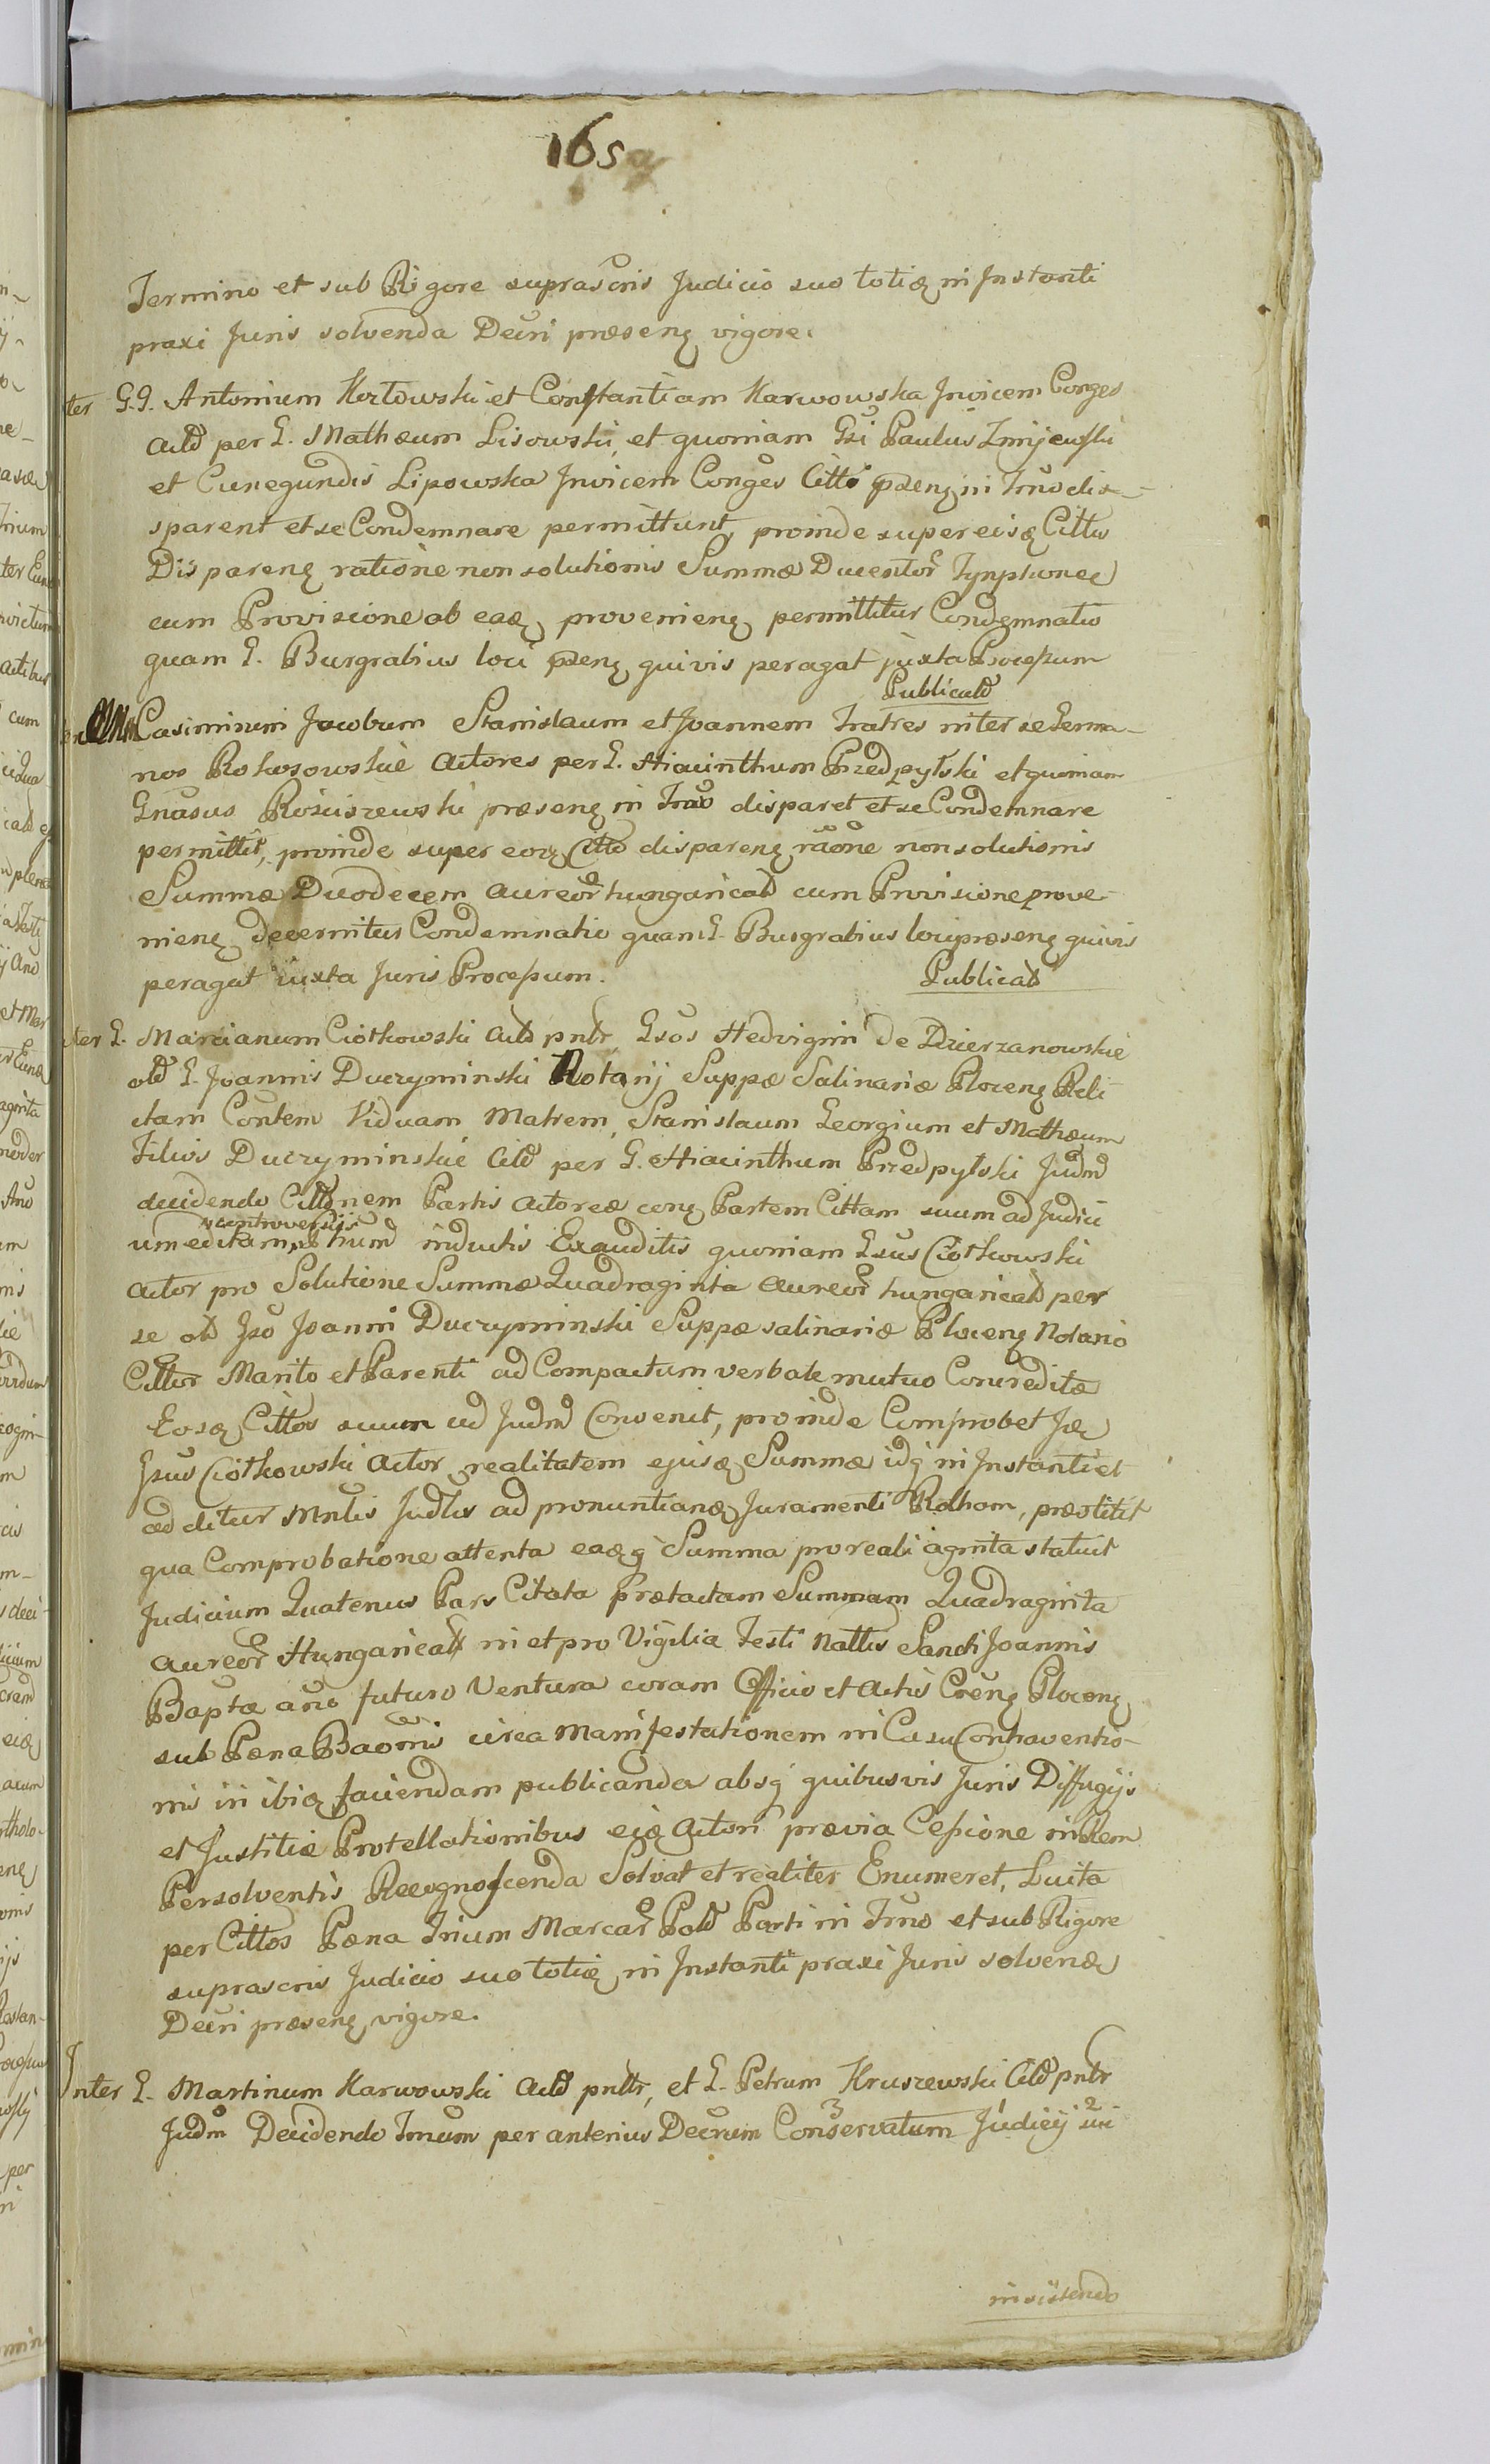 165a
Termino et sub Rigore suprascris Judicio suo totiq in Instanti
praxi Juris solvenda Decri præsenq vigore.
ter G.G. Antonium Kozłowski et Constantiam Karwowska Invicem Conges
Actd per G. Mathæum Lisowski, et quoniam Gsi Paulus Zmijewski
et Cunegundis Lipowska Invicem Conges Citti pzenq in Trno dis-
sparent et se Condemnare permittunt, proinde super eisq Cittis
Disparenq ratione non solutionis Summæ Ducentor Tynpfionee
cum Provisione ab eaq provenienq permittitur Condemnatio
quam G. Burgrabius loci pzenq quivis peragat juxta Processum
Publicatd
Casimirum Jacobum Stanislaum et Joannem Fratres inter se Germa-
nos Rokosowskie Actores per G. Hiacinthum Przedpyłski et quoniam
Gnasus Rościszewski præsenq in Trno disparet et se Condemnare
permittit, proinde super eoq Citto disparenq raone non solutionis
Summæ Duodecem aureor hungaricatd cum Provisione prove-
nienq decernitur Condemnatio quam G. Burgrabius loci præsenq quivis
peragat iuxta Juris Processum.
Publicatd
ter G. Marcianum Ciotkowski Actd pntr, Gsos Hedvigim de Dzierzanowskie
old G. Joannis Duczyminski Notarij Suppæ Salinariæ Plocenq Reli-
ctam Contem Viduam Matrem, Stanislaum Georgium et Mathæum
Filios Duczyminskie Citd per G. Hiacinthum Przedpyłski Judm
decidendo Cittonem Partis Actoreæ conq Partem Cittam suum ad Judici
um editam, controversiis hincd inductis Exauditis quoniam Gsus Ciotkowski
Actor pro Solutione Summæ Quadraginta Aureor hungaricatd per
se old Gso Joanni Duczyminski Suppæ salinariæ Plocenq Notario
Cittor Marito et Parenti ad Compactum verbale mutuo Concreditæ
Eosq Cittos suum ad Judm Convenit, proinde Comprobet Jq
Gsus Ciotkowski Actor realitatem ejusq Summæ idq in Instanti et
ad ditur Mnlis Judlis ad pronuntianq Juramenti Rotham, præstitit
qua Comprobatione attenta eaqq Summa pro reali agnita statuit
Judicium Quatenus Pars Citata prætactam Summam Quadraginta
aureor Hungaricatd in et pro Vigilia Festi Nattis Sancti Joannis
Baptæ ano futuro Ventura coram Officio et Actis Crenq Plocenq
sub Pæna Baonis circa Manifestationem in Casu Contraventio-
nis in ibiq faciendam publicanda absq quibusvis Juris Diffugijs
et Justitiæ Protellationibus eiq Actori prævia Cessione inidem
Persolventis Recognoscenda Solvat et realiter Enumeret, Luita
per Cittos Pæna Trium Marcar Pold Parti in Trno et sub Rigore
suprascris Judicio suo totiq in Instanti praxi Juris solvenq
Decri præsenq vigore.
Inter G. Martinum Karwowski Actd pntr, et G. Petrum Kruszewski Citd pntr
Judm Decidendo Trnum per anterius Decrum Conservatum Judicij sui
insistendo